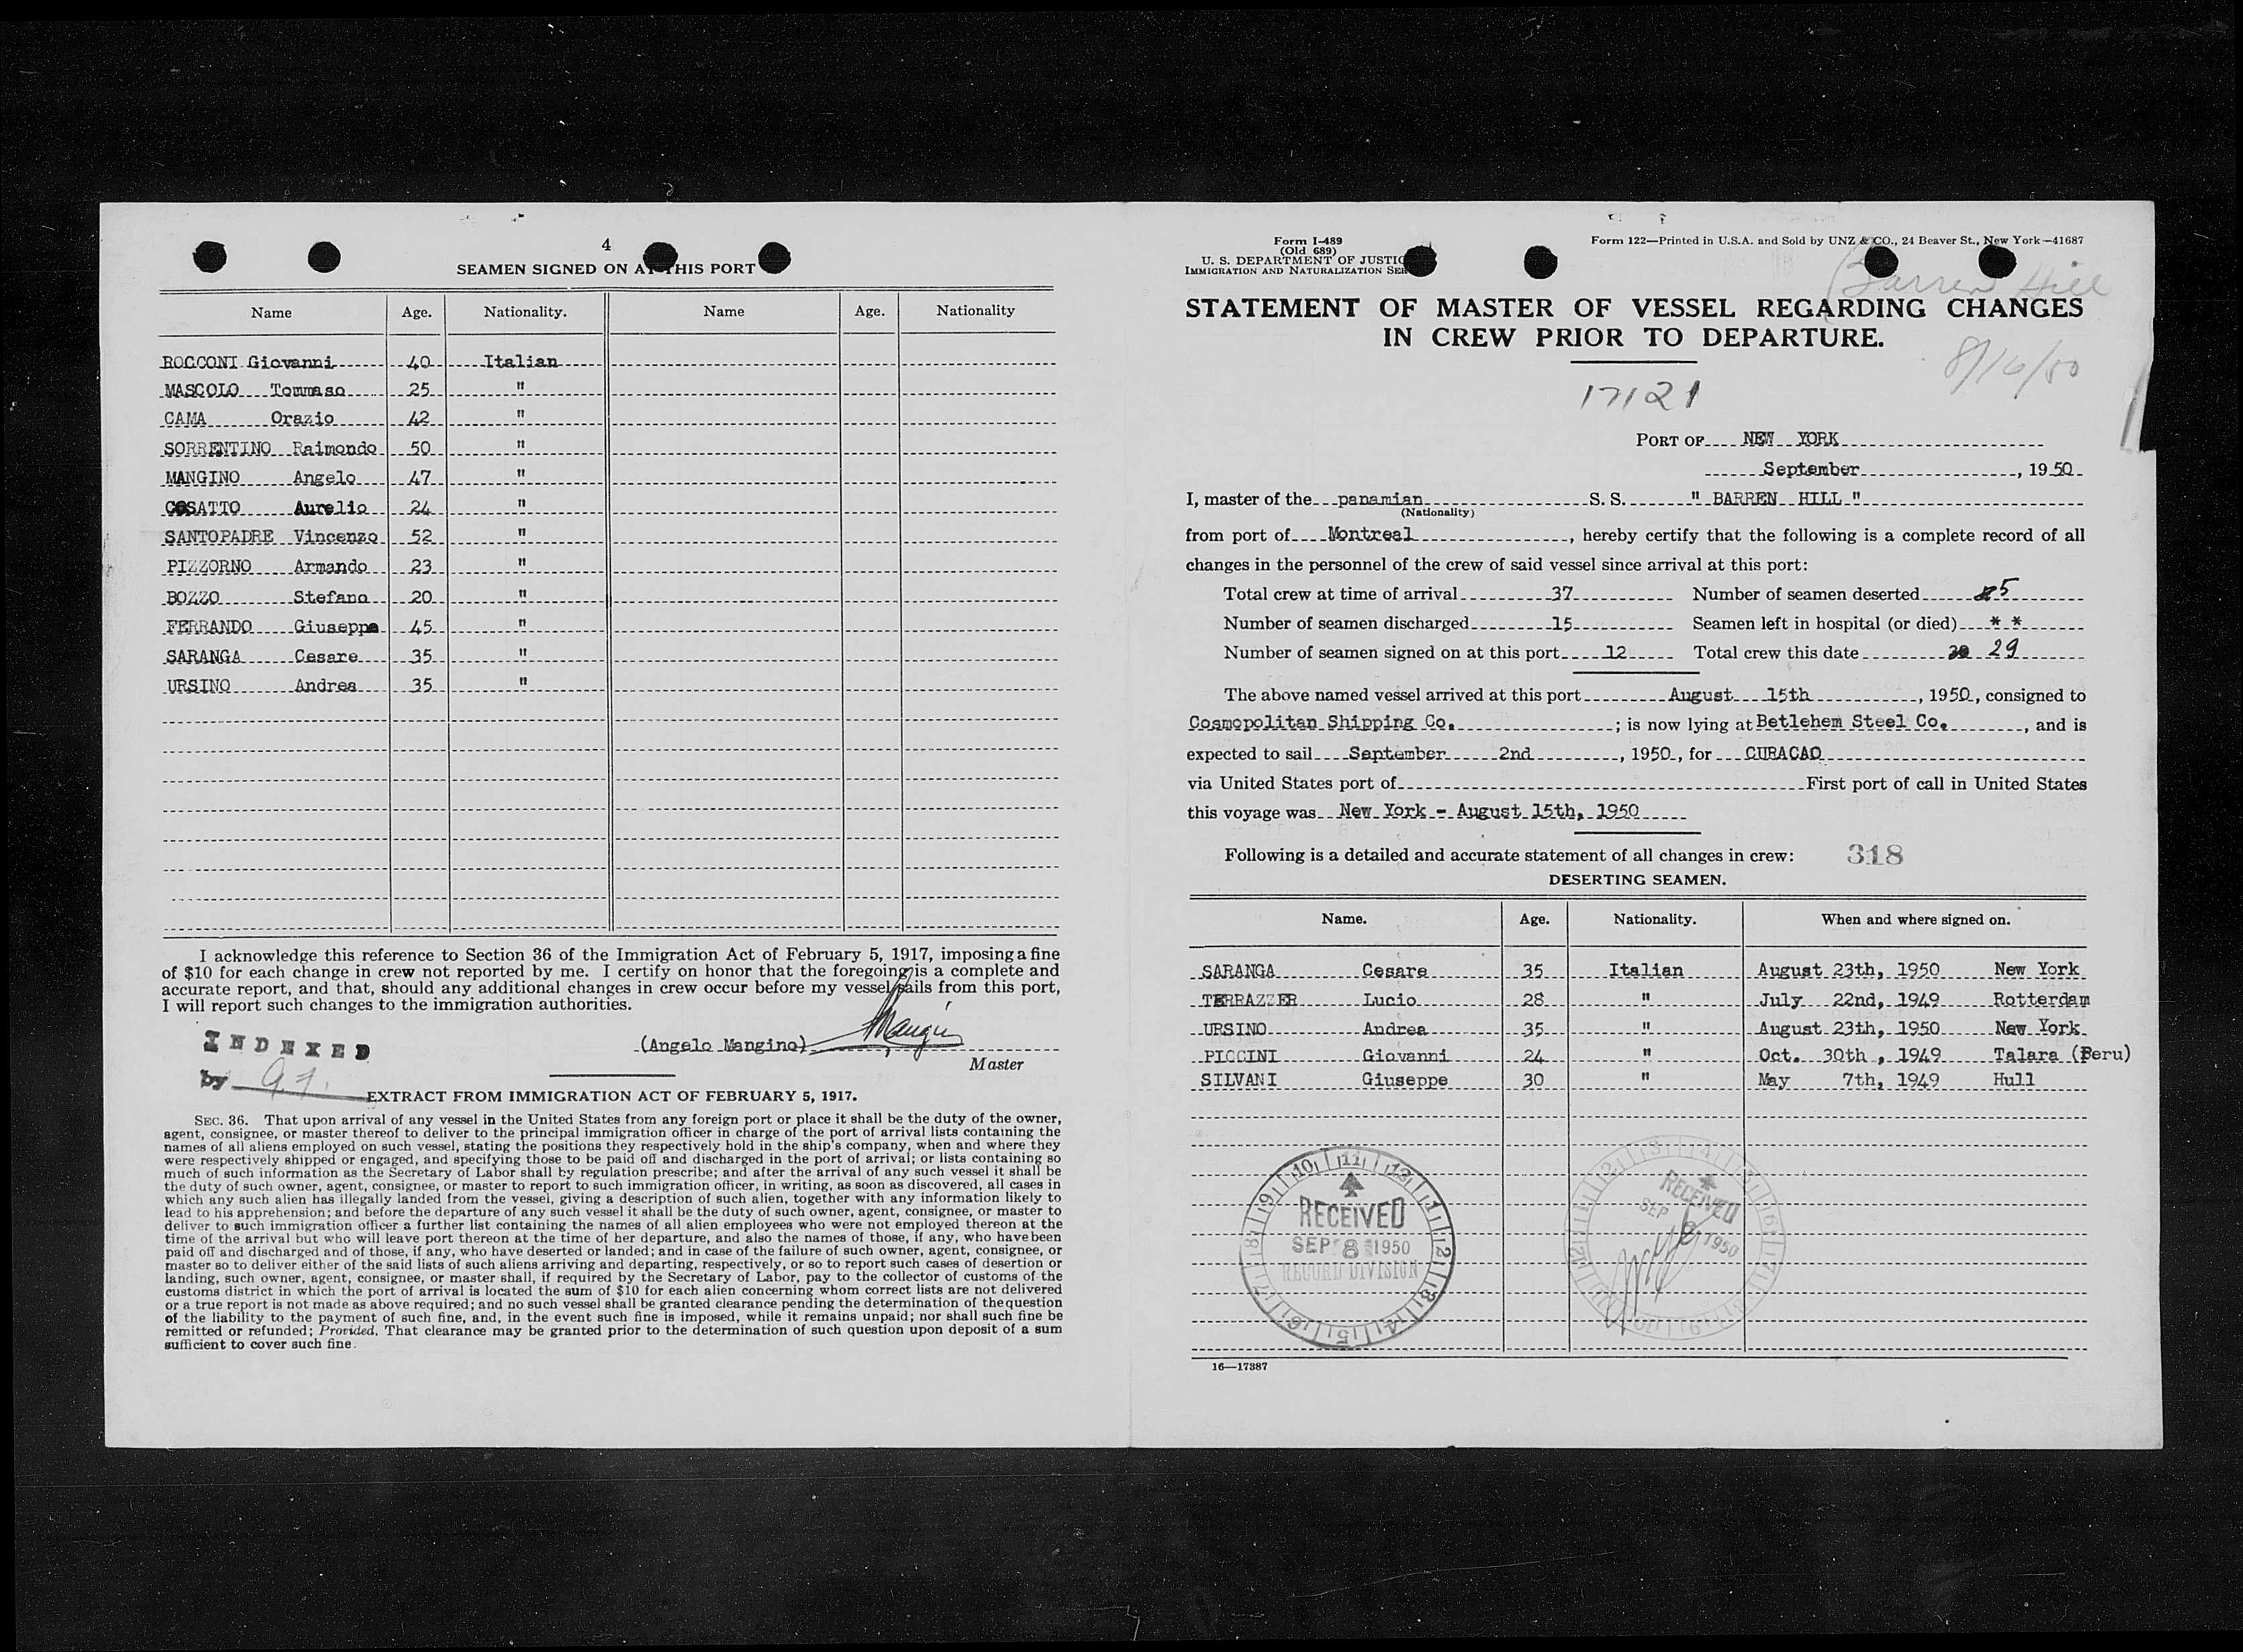 4
SEAMEN SIGNED ON AT THIS PORT
Name Age. Nationality. Name Age. Nationality
ROCCONI Giovanni 40 Italian
MASCOLO Tommaso 25 "
CAMA Orazio 42 "
SORRENTINO Raimondo 50 "
MANGINO Angelo 47 "
COSATTO Aurelio 24 "
SANTOPADRE Vincenzo 52 "
PIZZORNO Armando 23 "
BOZZO Stefano 20 "
FERRANDO Giuseppe 45 "
SARANGA Cesare 35 "
URSINO Andrea 35 "
I acknowledge this reference to Section 36 of the Immigration Act of February 5, 1917, imposing a fine
of $10 for each change in crew not reported by me. I certify on honor that the foregoing is a complete and
accurate report, and that, should any additional changes in crew occur before my vessel sails from this port,
I will report such changes to the immigration authorities.
INDEXED
by
(Angelo Mangino)
Master
EXTRACT FROM IMMIGRATION ACT OF FEBRUARY 5, 1917.
SEC. 36. That upon arrival of any vessel in the United States from any foreign port or place it shall be the duty of the owner,
agent, consignee, or master thereof to deliver to the principal immigration officer in charge of the port of arrival lists containing the
names of all aliens employed on such vessel, stating the positions they respectively hold in the ship's company, when and where they
were respectively shipped or engaged, and specifying those to be paid off and discharged in the port of arrival; or lists containing so
much of such information as the Secretary of Labor shall by regulation prescribe; and after the arrival of any such vessel it shall be
the duty of such owner, agent, consignee, or master to report to such immigration officer, in writing, as soon as discovered, all cases in
which any such alien has illegally landed from the vessel, giving a description of such alien, together with any information likely to
lead to his apprehension; and before the departure of any such vessel it shall be the duty of such owner, agent, consignee, or master to
deliver to such immigration officer a further list containing the names of all alien employees who were not employed thereon at the
time of the arrival but who will leave port thereon at the time of her departure, and also the names of those, if any, who have been
paid off and discharged and of those, if any, who have deserted or landed; and in case of the failure of such owner, agent, consignee, or
master so to deliver either of the said lists of such aliens arriving and departing, respectively, or so to report such cases of desertion or
landing, such owner, agent, consignee, or master shall, if required by the Secretary of Labor, pay to the collector of customs of the
customs district in which the port of arrival is located the sum of $10 for each alien concerning whom correct lists are not delivered
or a true report is not made as above required; and no such vessel shall be granted clearance pending the determination of the question
of the liability to the payment of such fine, and, in the event such fine is imposed, while it remains unpaid; nor shall such fine be
remitted or refunded; Provided, That clearance may be granted prior to the determination of such question upon deposit of a sum
sufficient to cover such fine.
Form I-489
(Old 689)
U. S. DEPARTMENT OF JUSTIC
IMMIGRATION AND NATURALIZATION SER
Form 122—Printed in U.S.A. and Sold by UNZ & CO., 24 Beaver St., New York—41687
Barren Hill
STATEMENT OF MASTER OF VESSEL REGARDING CHANGES
IN CREW PRIOR TO DEPARTURE.
8/16/50
17121
PORT OF NEW YORK
September, 1950
I, master of the panamian S. S. " BARREN HILL "
(Nationality)
from port of Montreal, hereby certify that the following is a complete record of all
changes in the personnel of the crew of said vessel since arrival at this port:
Total crew at time of arrival 37 Number of seamen deserted 5
Number of seamen discharged 15 Seamen left in hospital (or died) * *
Number of seamen signed on at this port 12 Total crew this date 29
The above named vessel arrived at this port August 15th, 1950, consigned to
Cosmopolitan Shipping Co. ; is now lying at Betlehem Steel Co. , and is
expected to sail September 2nd, 1950, for CURACAO
via United States port of First port of call in United States
this voyage was New York - August 15th, 1950
Following is a detailed and accurate statement of all changes in crew: 318
DESERTING SEAMEN.
Name. Age. Nationality. When and where signed on.
SARANGA Cesare 35 Italian August 23th, 1950 New York
TERRAZZER Lucio 28 " July 22nd, 1949 Rotterdam
URSINO Andrea 35 " August 23th, 1950 New York
PICCINI Giovanni 24 " Oct. 30th , 1949 Talara (Peru)
SILVANI Giuseppe 30 " May 7th, 1949 Hull
RECEIVED
SEP 8 1950
RECORD DIVISION
RECEIVED
SEP 1950
16—17387